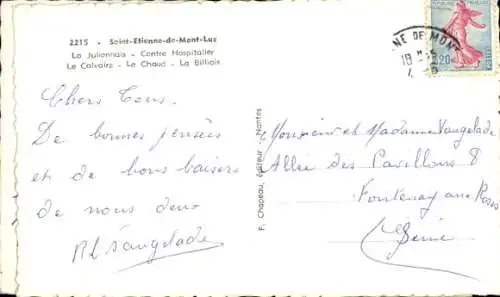 2215 - Saint-Etienne-de-Mont-Luc
La Juliennais - Centre Hospitalier
Le Calvaire - Le Chaud - La Billiais
Chers Tous.
De bonnes pensées
et de bons baisers
de nous deux
F. Chapeau, éditeur - Nantes
NE DE MONT
18
0,20
Monsieur et Madame Vaugelade
Allée des Pavillons 8
Fontenay aux Roses
Seine